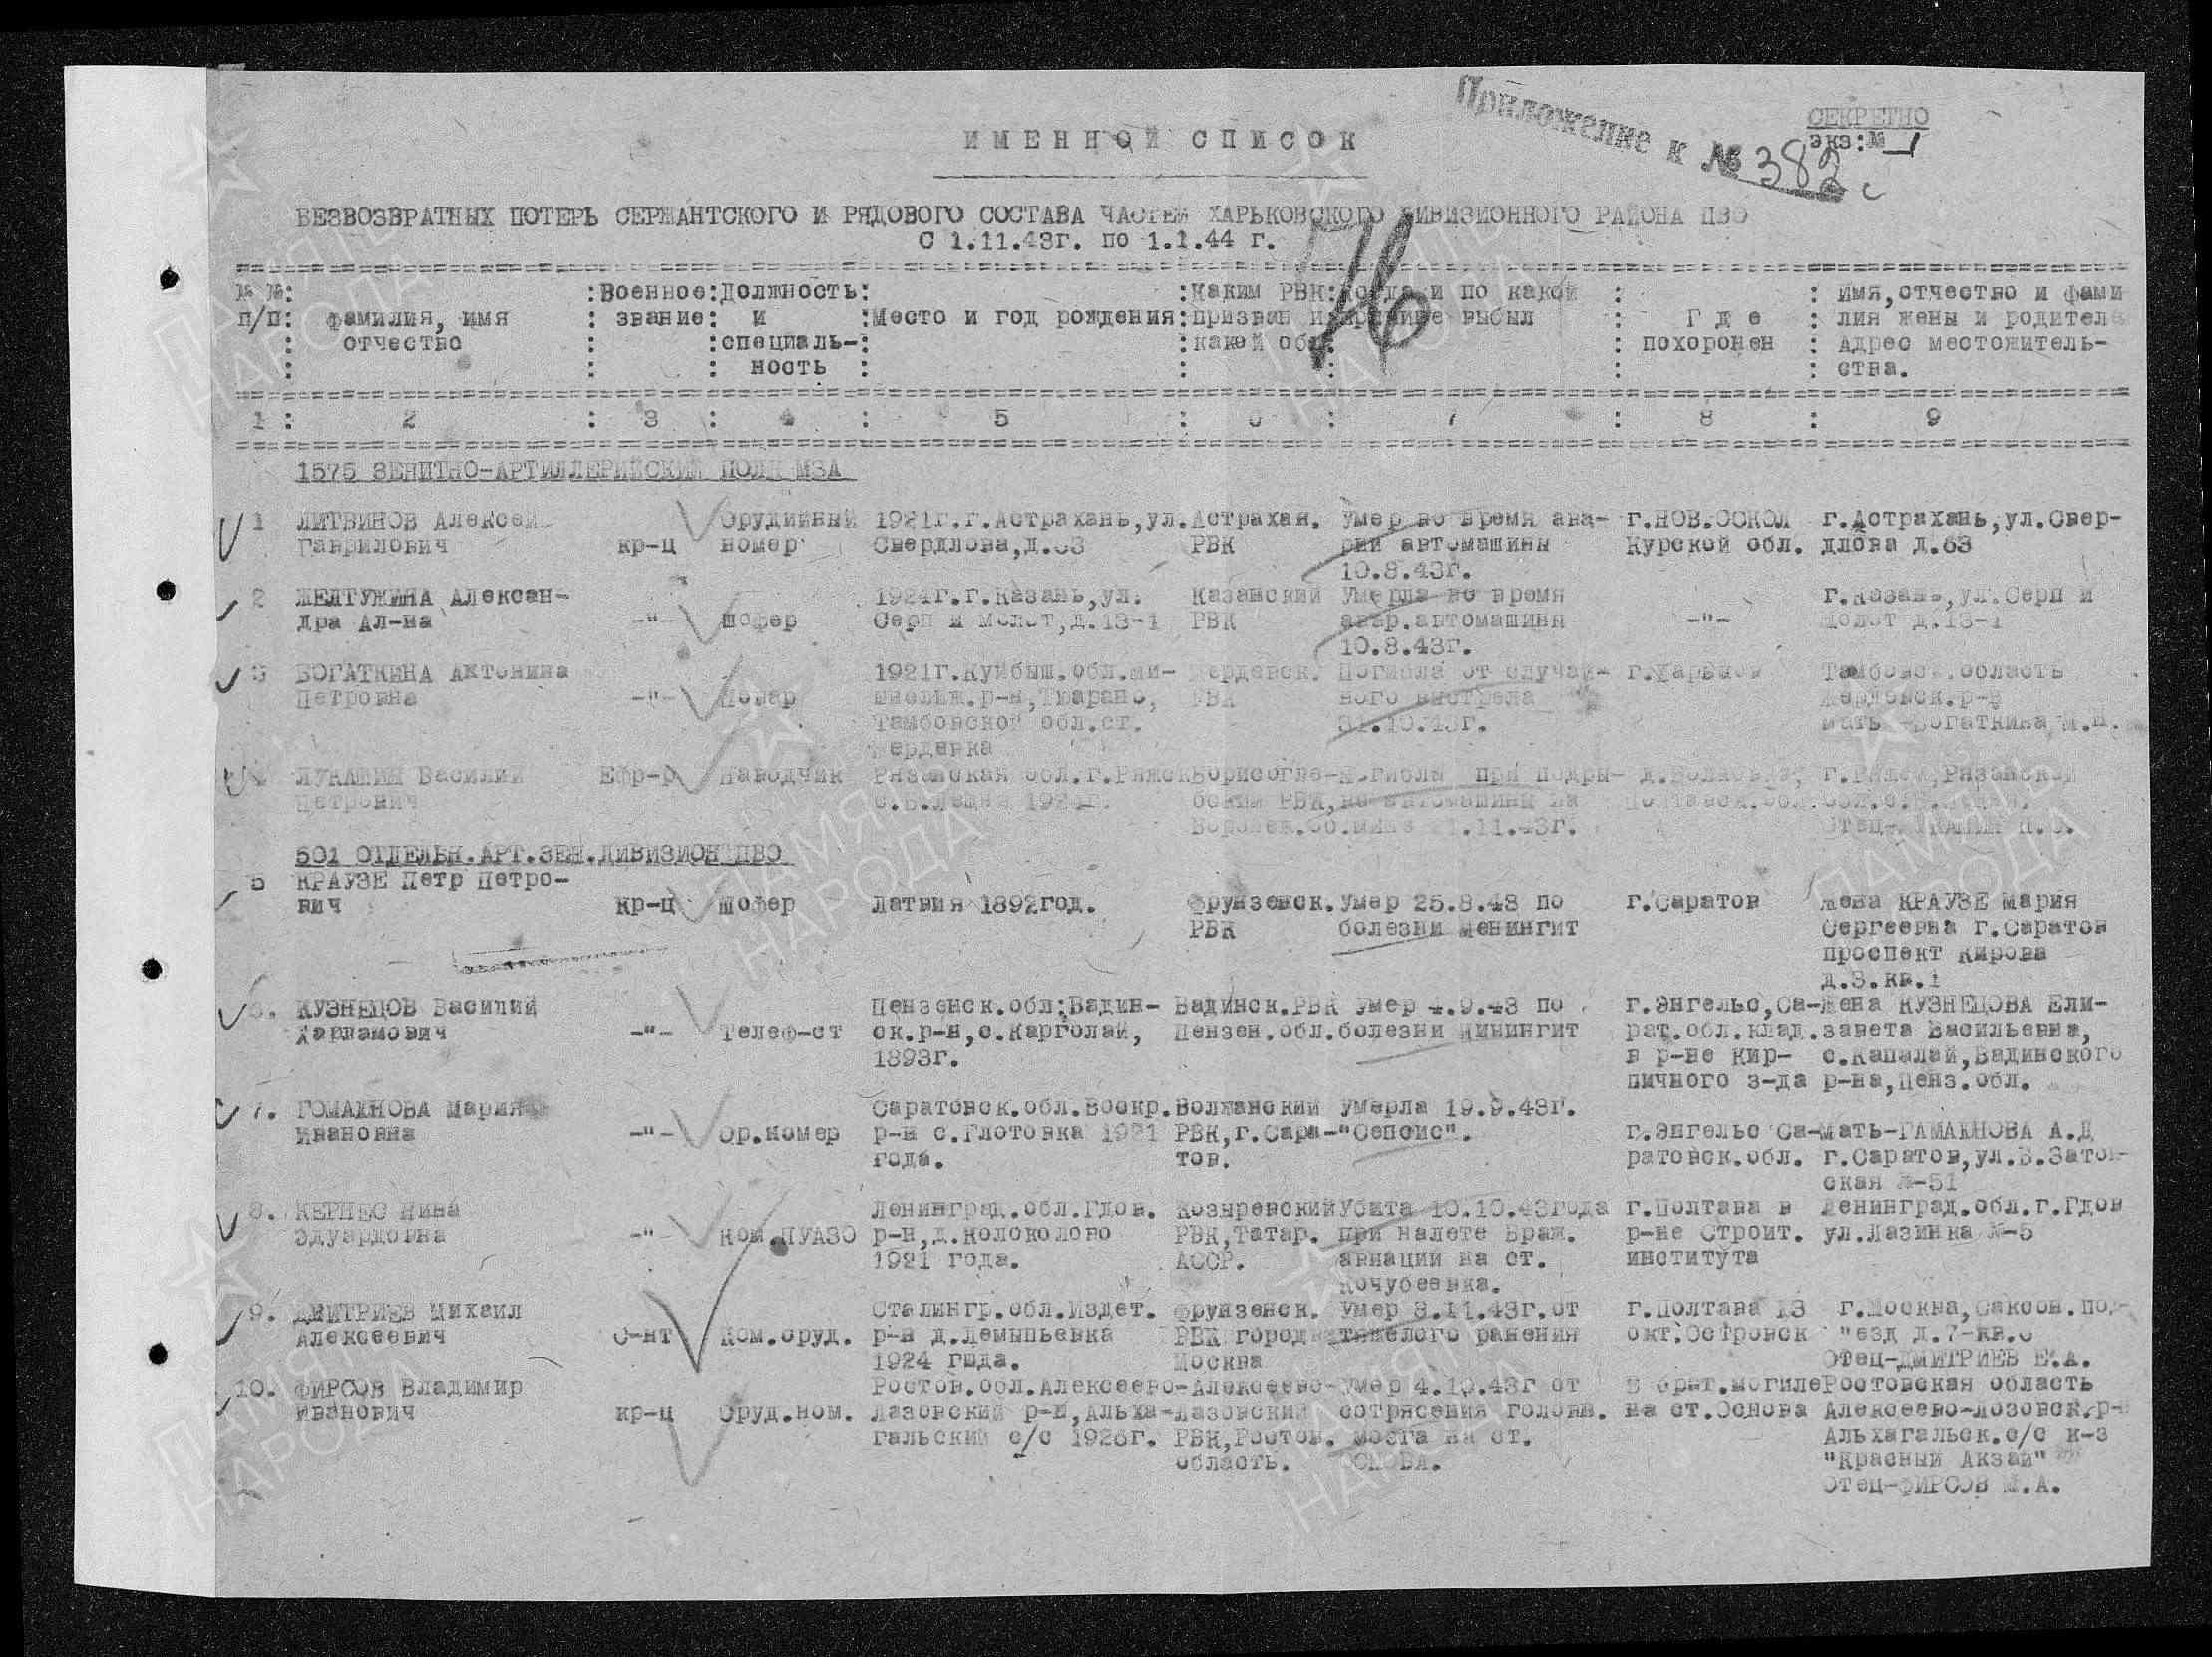 Приложение к № 382с
СЕКРЕТНО
экз:№ 1
ИМЕННОЙ СПИСОК
БЕЗВОЗВРАТНЫХ ПОТЕРЬ СЕРЖАНТСКОГО И РЯДОВОГО СОСТАВА ЧАСТЕЙ ХАРЬКОВСКОГО ДИВИЗИОННОГО РАЙОНА ПВО
С 1.11.43г. по 1.1.44 г.
№ №: :Военное:Должность: :Каким РВК:Когда и по какой : : Имя,отчество и фами
п/п: фамилия, имя : звание: и :Место и год рождения:призван и причине выбыл : Г д е : лия жены и родител
: отчество : :специаль-: :какой обл : похоронен : Адрес местожитель-
: : : ность : : : : : ства.
1 : 2 : 3 : 4 : 5 : 6 : 7 : 8 : 9
1575 ЗЕНИТНО-АРТИЛЛЕРИЙСКИЙ ПОЛК МЗА
1 ЛИТВИНОВ Алексей Орудийный 1921г.г.Астрахань,ул. Астрахан. Умер во время ава- г.НОВ.ОСКОЛ г.Астрахань,ул.Свер-
Гаврилович кр-ц номер Свердлова,д.63 РВК рии автомашины Курской обл. длова д.63
10.8.43г.
2 ЖЕЛТУХИНА Алексан- 1924г.г.Казань,ул. Казанский Умерла во время г.Казань,ул.Серп и
дра Ал-на -"- шофер Серп и молот,д.13-1 РВК авар.автомашины -"- молот д.13-1
10.8.43г.
3 БОГАТКИНА Антонина 1921г.Куйбыш.обл. Погибла от случай- г.Харьков Тамбовск.область
Петровна -"- Повар РВК ного выстрела Жердевск.р-н
Тамбовской обл.ст. 31.10.43г. мать -Богаткина М.
Жердевка
ЛУКАШИН Василий Ефр-р Наводчик Рязанская обл.г.Ряжск Борисогле- Погибла при подры-
Петрович бский РВК, ве автомашины на
Воронеж.об. мине 11.43г.
501 ОТДЕЛЬН.АРТ.ЗЕН.ДИВИЗИОН ПВО
5 КРАУЗЕ Петр Петро-
вич кр-ц шофер Латвия 1892год. Фрунзенск. Умер 25.8.43 по г.Саратов жена КРАУЗЕ Мария
РВК болезни менингит Сергеевна г.Саратов
проспект Кирова
д.3.кв.1
6. КУЗНЕЦОВ Василий Пензенск.обл:Вадин- Вадинск.РВК умер 4.9.43 по г.Энгельс,Са-Жена КУЗНЕЦОВА Ели-
Харламович -"- Телеф-ст ск.р-н,с.Карголай, Пензен.обл.болезни минингит рат.обл.клад.завета Васильевна,
1893г. в р-не кир- с.Капалай,Вадинского
пичного з-да р-на,Пенз.обл.
7. ГОМАЮНОВА Мария Саратовск.обл.Воскр.Волжанский Умерла 19.9.43г.
Ивановна -"- Ор.номер р-н с.Глотовка 1921 РВК,г.Сара-"Сепсис". г.Энгельс Са-мать-ГАМАЮНОВА А.Д
года. тов. ратовск.обл. г.Саратов,ул.Б.Затон-
ская №-51
8. КЕРПЕС Нина Ленинград.обл.Гдов. Козыревский Убита 10.10.43года г.Полтава в Ленинград.обл.г.Гдов
Эдуардовна -"- Ном.ПУАЗО р-н,д.Колоколово РВК,Татар. при налете Враж. р-не Строит. ул.Лазинка №-5
1921 года. АССР. авиации на ст. института
Кочубеевка.
9. ДМИТРИЕВ Михаил Сталингр.обл.Издет. Фрунзенск. Умер 8.11.43г.от г.Полтава 13 г.Москва,Саксон.под-
Алексеевич С-нт Ком.оруд. р-н д.Демыпьевка РВК город тяжелого ранения окт.Островск "езд д.7-кв.6
1924 года. Москва Отец-ДМИТРИЕВ Е.А.
10. ФИРСОВ Владимир Ростов.обл.Алексеево-Алексеево-умер 4.10.43г от В брат.могиле Ростовская область
Иванович кр-ц Оруд.ном. Лазовский р-н,Альха-Лазовский сотрясения головн. на ст.Основа Алексеево-лозовск.р-
гальский с/с 1926г. РВК,Ростов. мозга на ст. Альхагальск.с/с к-з
область. ОСНОВА. "Красный Аксай"
Отец-ФИРСОВ М.А.
ПАМЯТЬ НАРОДА